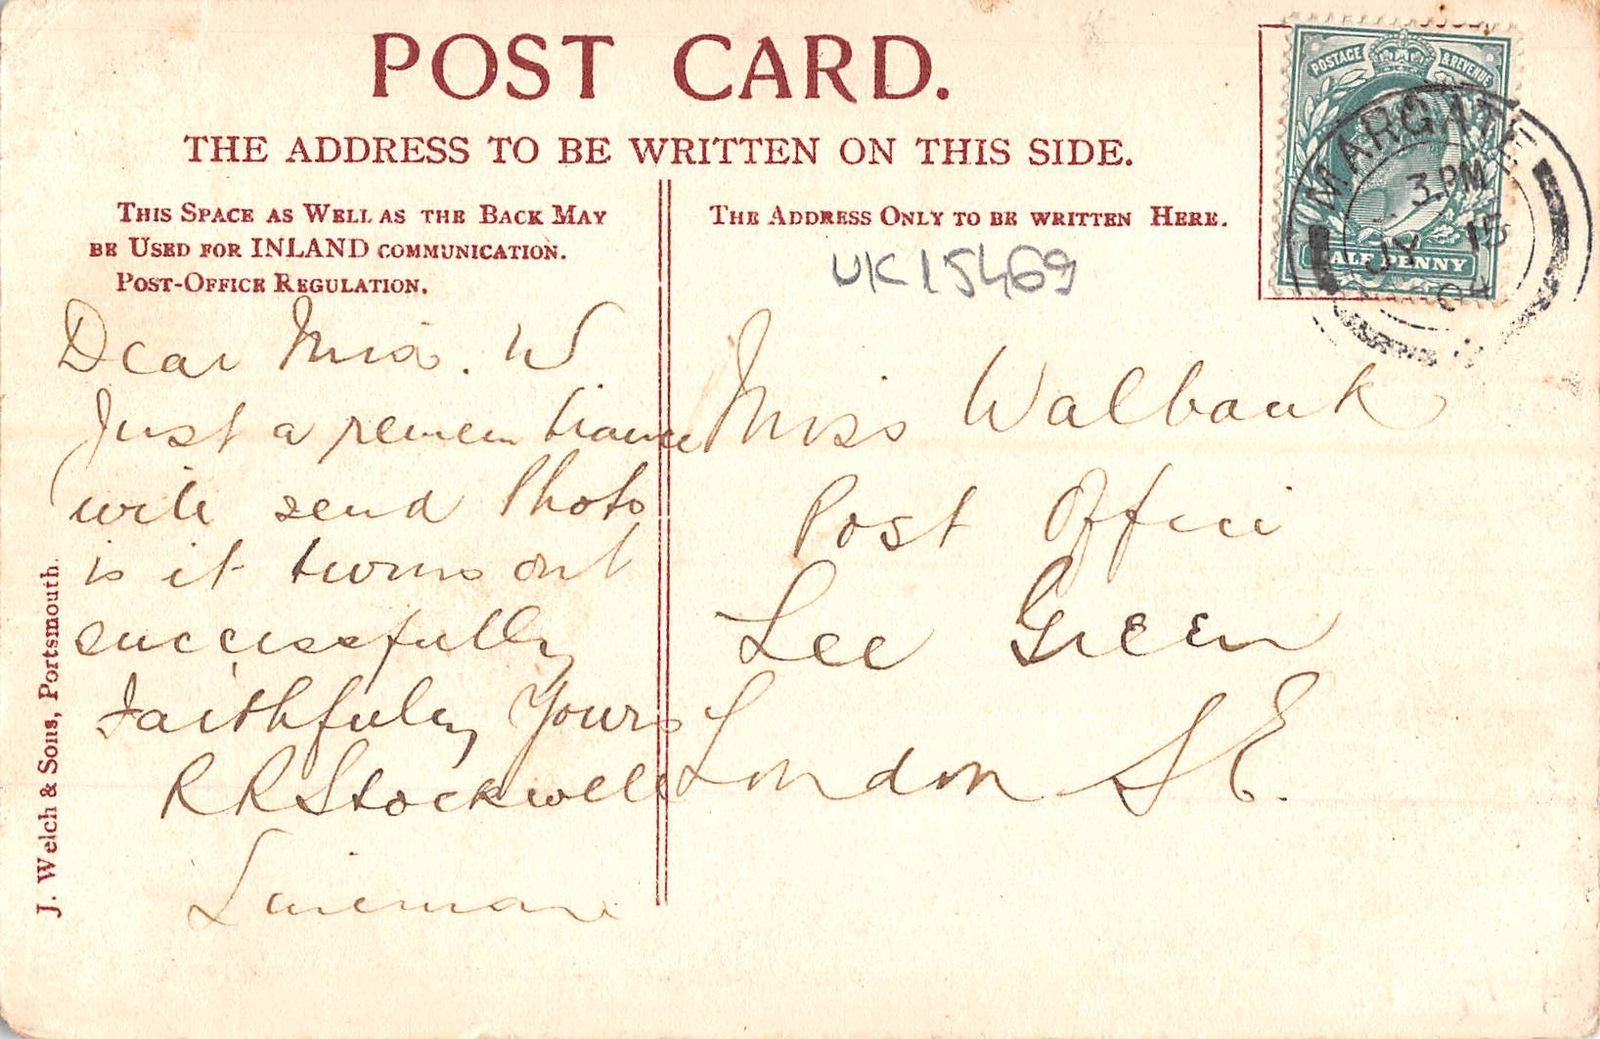 POST CARD.
THE ADDRESS TO BE WRITTEN ON THIS SIDE.
THIS SPACE AS WELL AS THE BACK MAY
BE USED FOR INLAND COMMUNICATION.
POST-OFFICE REGULATION.
THE ADDRESS ONLY TO BE WRITTEN HERE.
UK15469
POSTAGE & REVENUE
HALF PENNY
MARGATE
3.PM
JY 15
04
Dear Miss. W
Just a remembrance
will send Photo
is it turns out
successfully
Faithfully Yours
RR Stockwell
Lineman
Miss Walbank
Post Office
Lee Green
London S E.
J. Welch & Sons, Portsmouth.